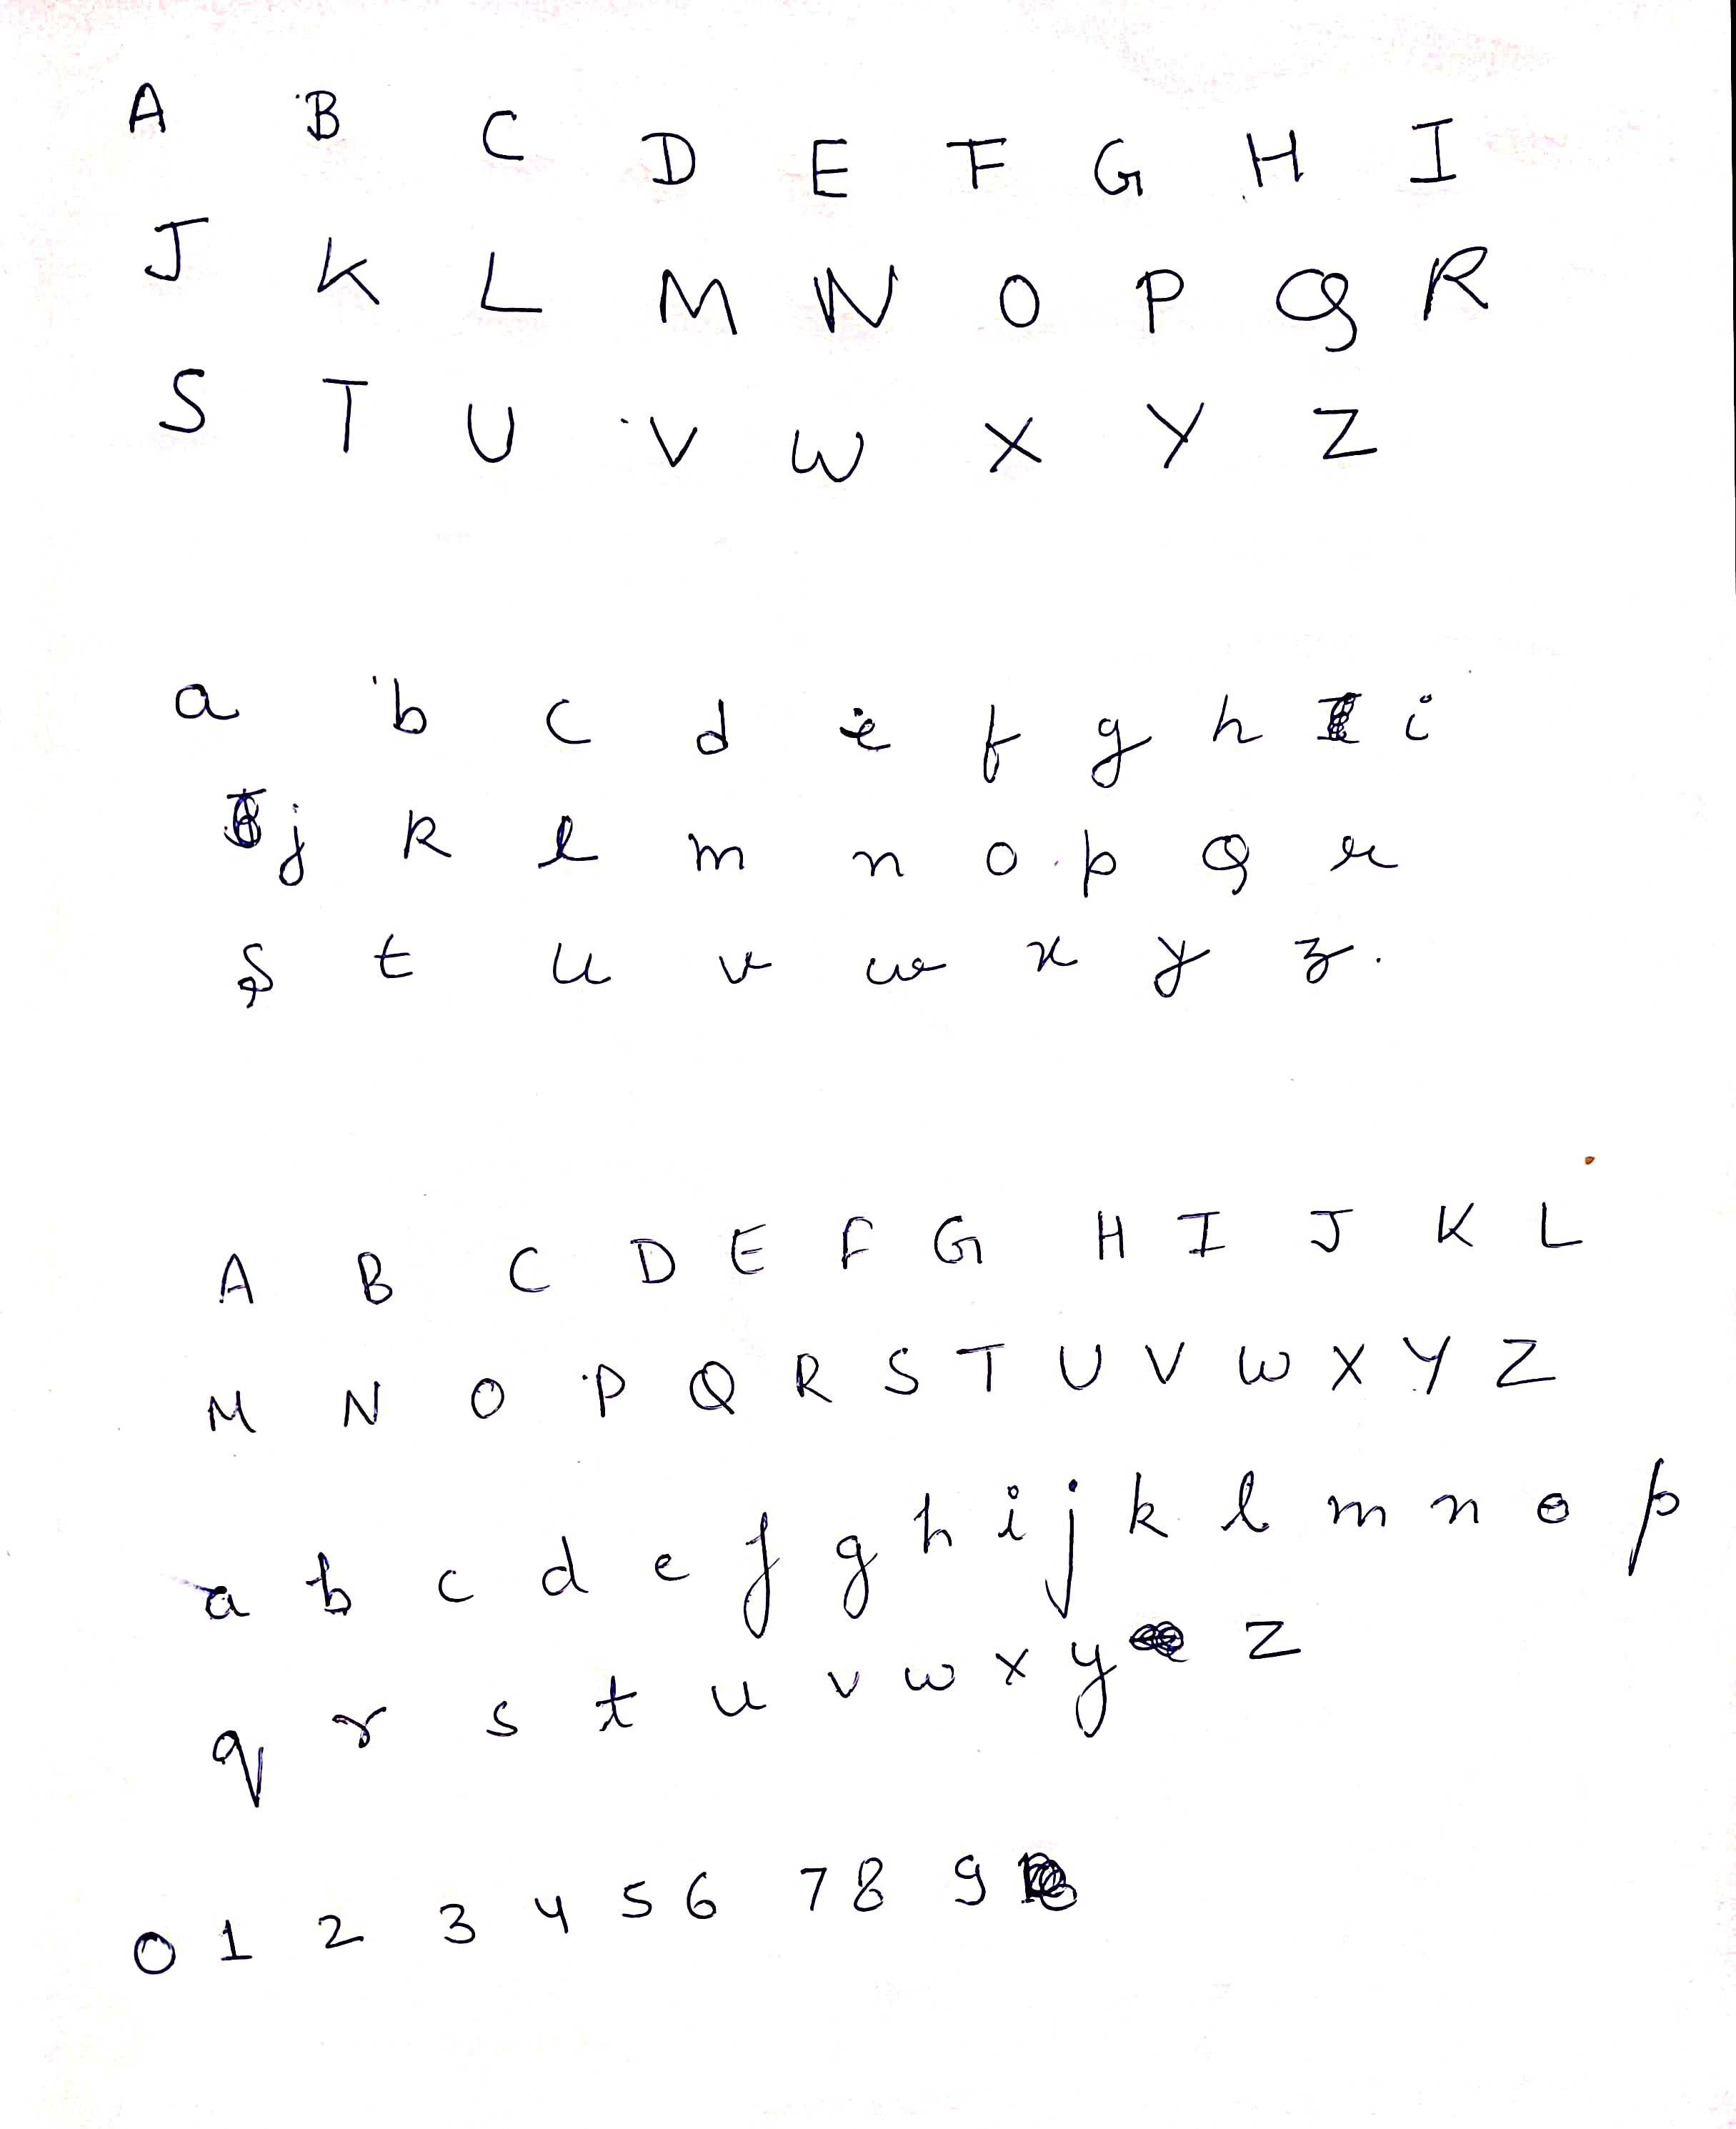 A B C D E F G H I
J K L M N O P Q R
S T U V W X Y Z
a b c d e f g h i
j k l m n o p q r
s t u v w x y z.
A B C D E F G H I J K L
M N O P Q R S T U V W X Y Z
a b c d e f g h i j k l m n o p
q r s t u v w x y z
0 1 2 3 4 5 6 7 8 9